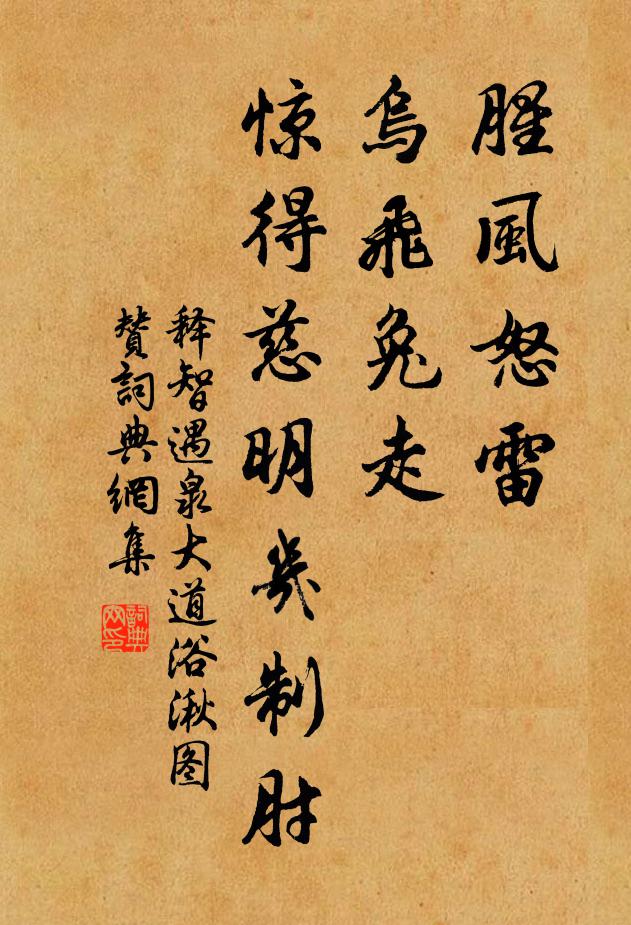 腥風怒雷
烏飛兔走
惊得慈明幾制肘
释智遇泉大道浴湫图
赞詞典網集
詞典網印